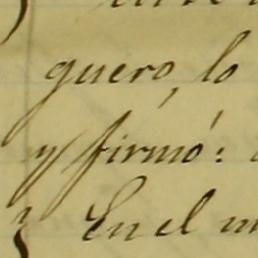 guero, lo
y firmó:
En el m